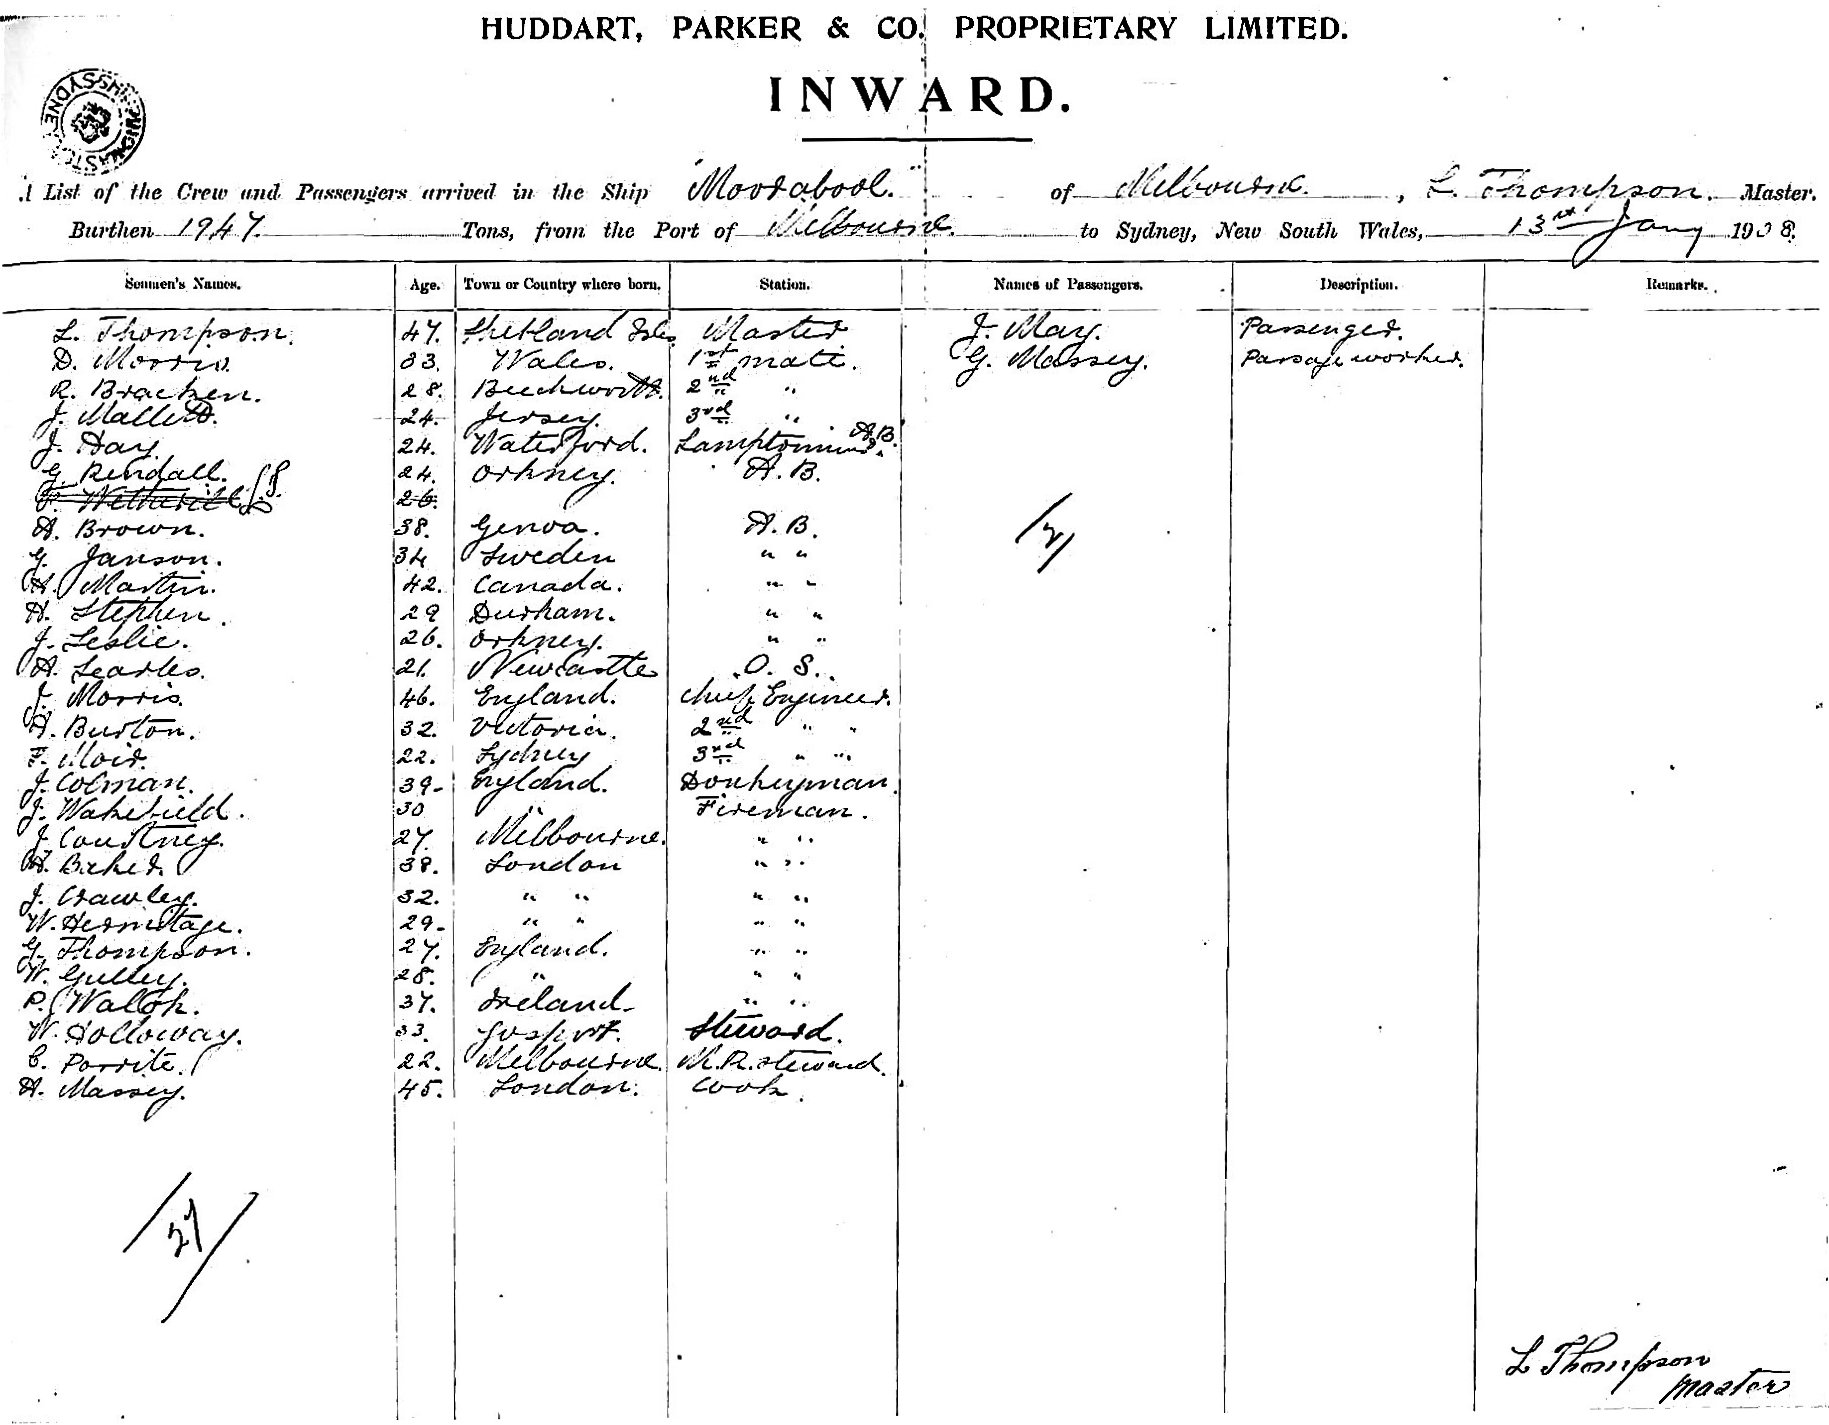 HUDDART, PARKER & CO. PROPRIETARY LIMITED.
INWARD.
A List of the Crew and Passengers arrived in the Ship "Moorabool." of Melbourne. , L. Thompson. Master.
Burthen 1947. Tons, from the Port of Melbourne. to Sydney, New South Wales, 13th Jany 1908.
Seamen's Names. Age. Town or Country where born. Station. Names of Passengers. Description. Remarks.
L. Thompson. 47. Shetland Isles Master J. May. Passenger.
D. Morris. 33. Wales. 1st mate. G. Massey. Passage worker.
R. Bracken. 28. Beechworth. 2nd "
J. Mallett. 24. Jersey. 3rd "
J. Hay. 24. Waterford. Lamptrimmer. A.B.
G. Rendall. 24. Orkney. A.B.
26.
A. Brown. 38. Genoa. A.B.
G. Janson. 34 Sweden " "
A. Martin. 42. Canada. " "
H. Stephen. 29 Durham. " "
J. Leslie. 26. Orkney. " "
A. Searles. 21. Newcastle O.S.
J. Morris. 46. England. Chief Engineer.
A. Burton. 32. Victoria. 2nd " "
F. Moir. 22. Sydney 3rd " "
J. Colman. 39. England. Donkeyman.
J. Wakefield. 30 " Fireman.
J. Courtney. 27. Melbourne. " "
A. Baker. 38. London " "
J. Crawley. 32. " " " "
W. Hermitage. 29. " " " "
G. Thompson. 27. England. " "
W. Gulley. 28. " " "
P. Walsh. 37. Ireland. " "
W. Holloway. 33. Gosport. Steward.
C. Porrite. 22. Melbourne. M.R. steward.
A. Massey. 45. London. Cook.
/2/
/27/
L Thompson
master